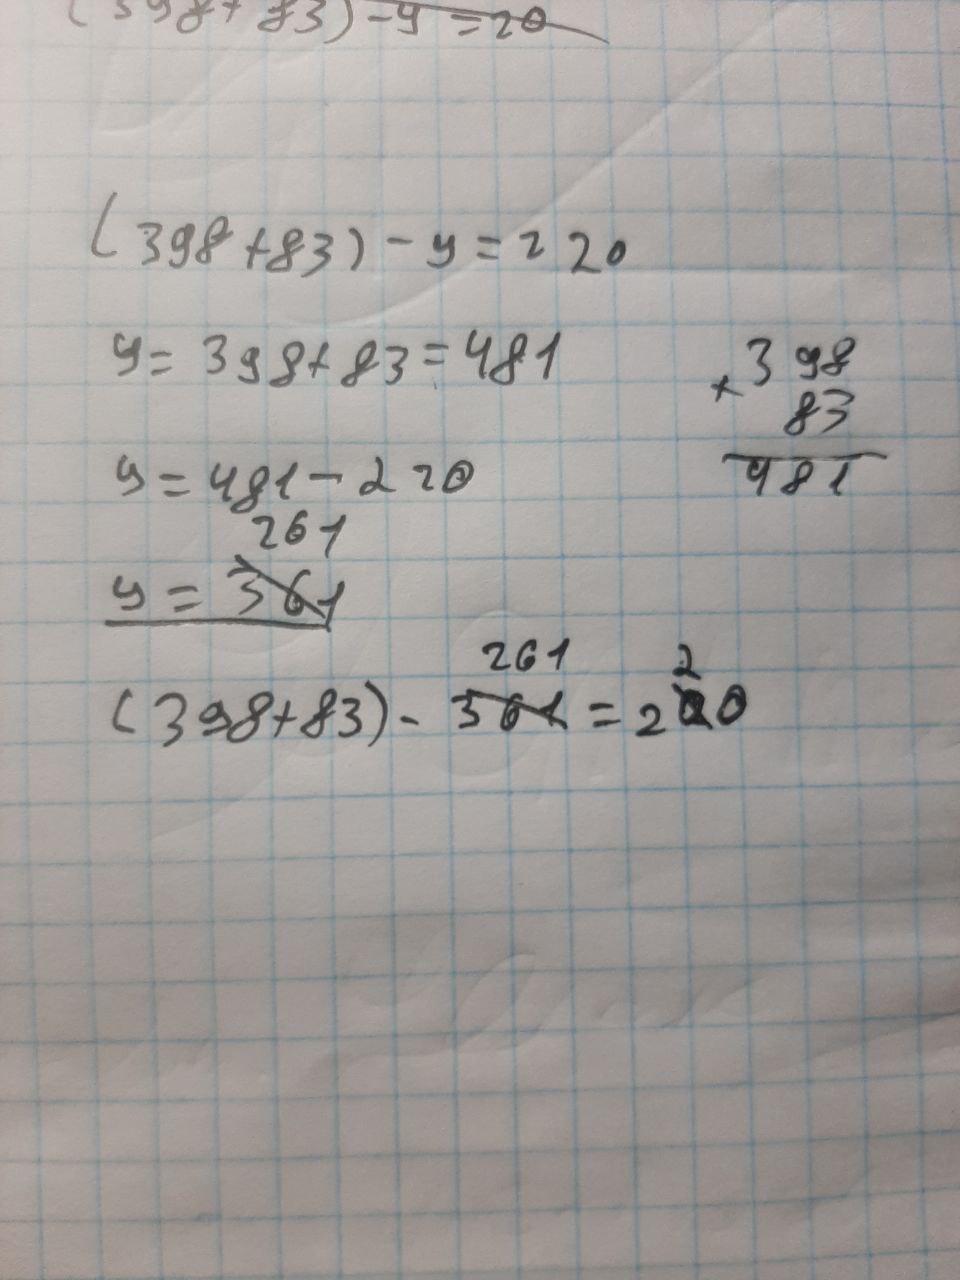 (398+83)-y=20
(398+83)-y=220
y=398+83=481
+398
83
481
y=481-220
261
y=361
261 2
(398+83)-361=200